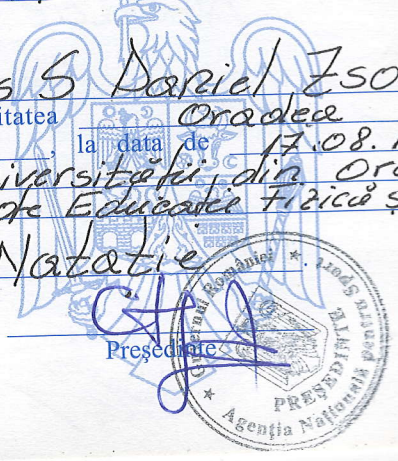 s S Daniel Zso
itatea Oradea
, la data de 17.08.1
iversității din Ora
de Educație Fizică ș
Natatie
Președinte
Guvernul României * Agenția Națională Pentru Sport *
PREȘEDINTE